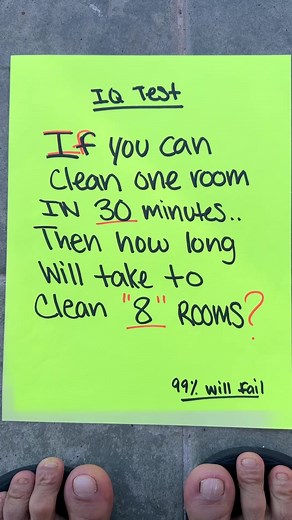 IQ Test
If you can
clean one room
IN 30 minutes..
Then how long
Will take to
Clean "8" ROOMS?
99% will fail